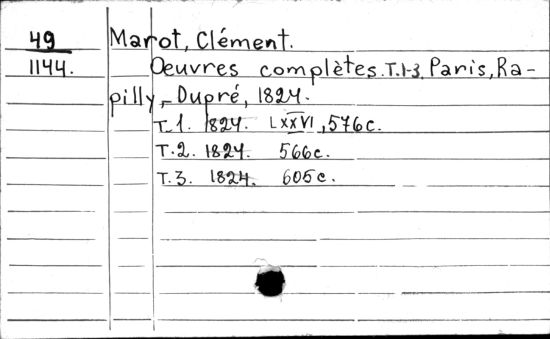 49 Marot, Clément.
1144. Oeuvres complètes. T.1-3. Paris, Ra-
pilly, Dupré, 1824.
T.1. 1824. LXXVI, 576c.
T.2. 1824. 566c.
T.3. 1824. 605c.